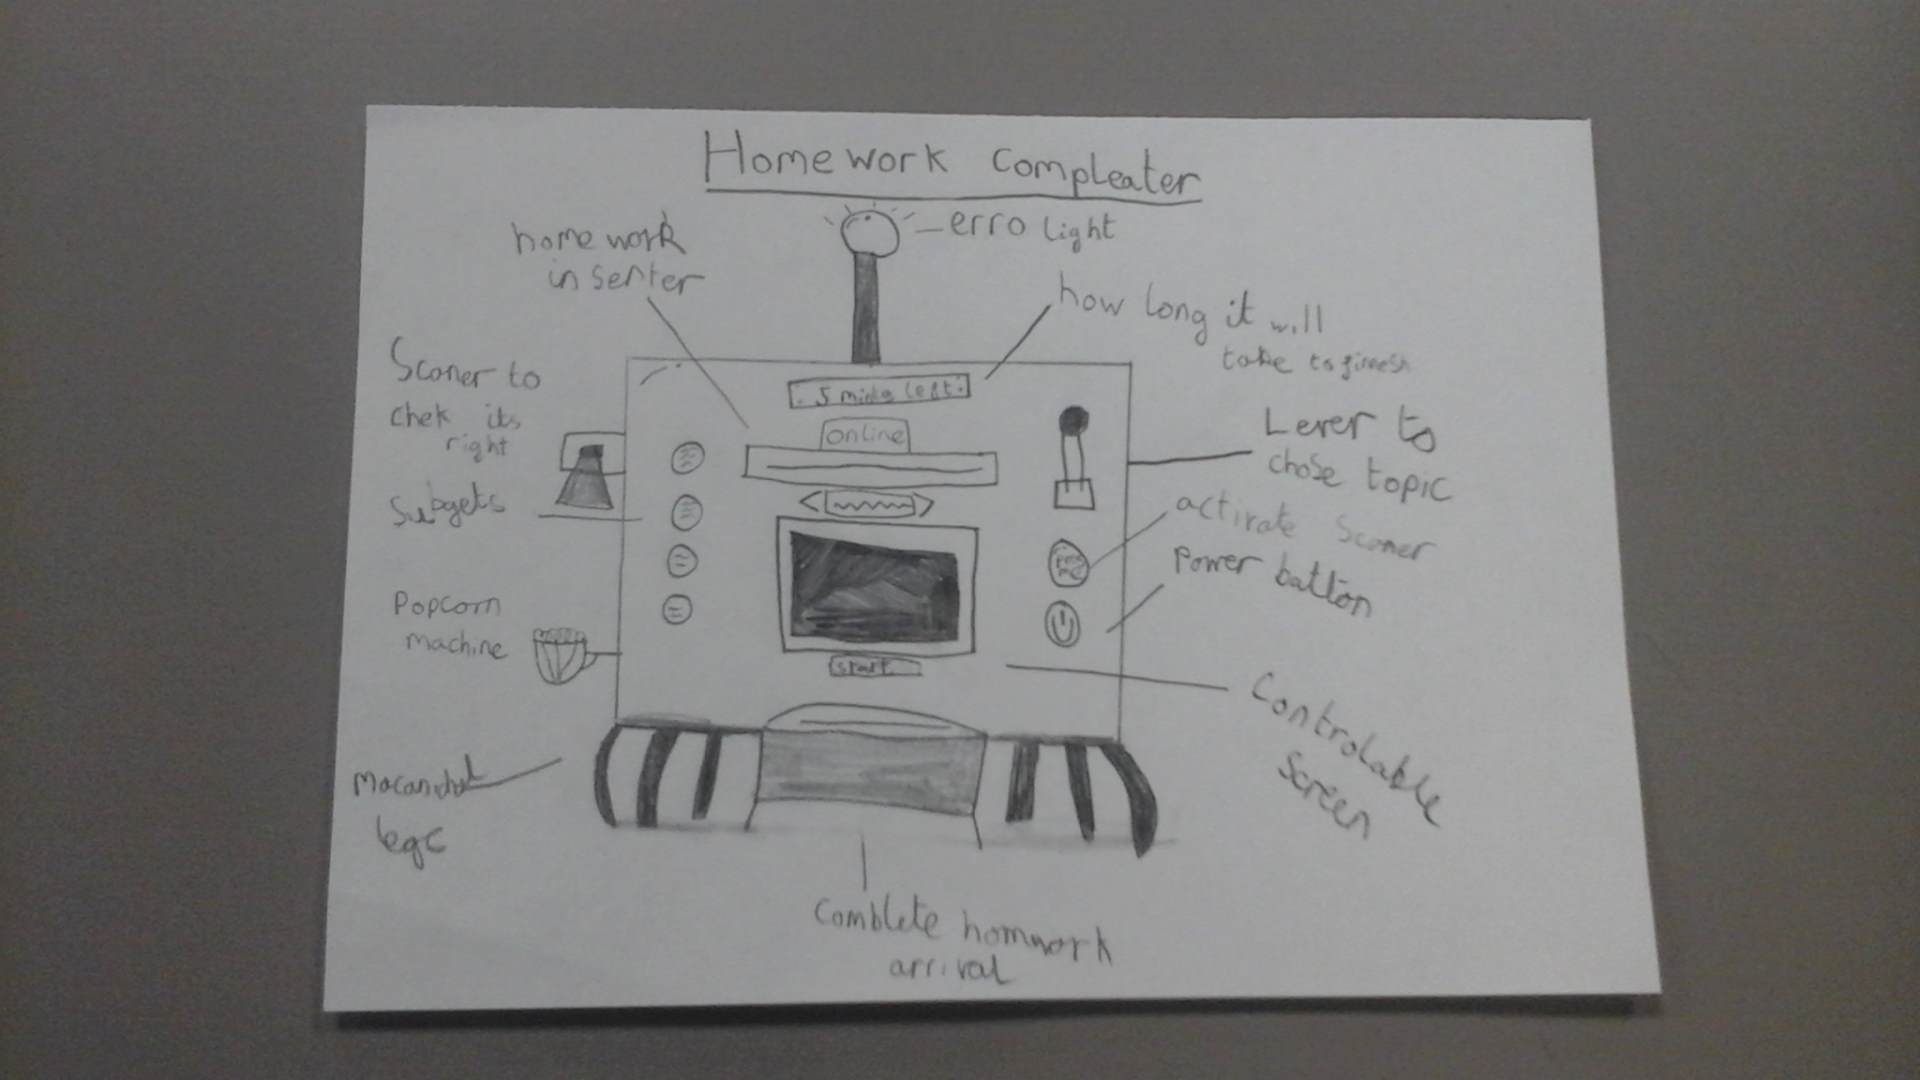 Homework Compleater
erro light
home work
insenter
how long it will
take to finesh
Scaner to
chek its
right
5 mints left
Online
Lever to
chose topic
Subgets
activate Scaner
Power button
Popcorn
machine
start
Controlable
Screen
Macanichal
legs
Comblete homwork
arrival